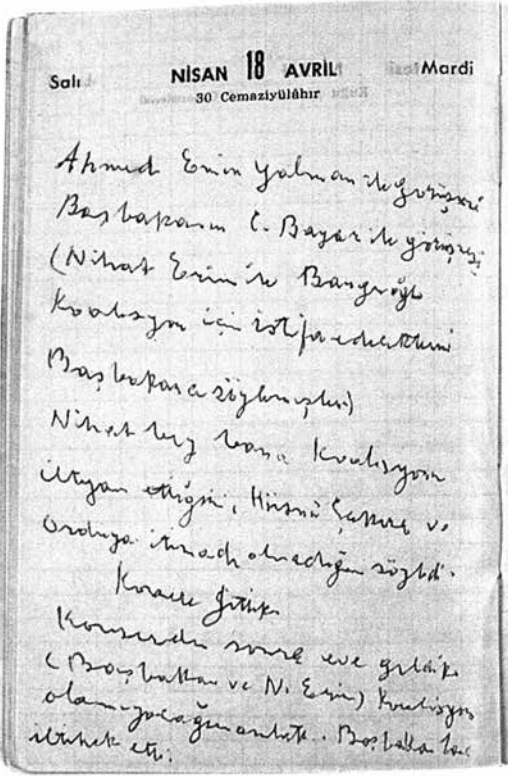 Salı NİSAN 18 AVRIL Mardi
30 Cemaziyülâhır
Ahmed Emin Yalman ile görüşmesi
Başbakanın C. Bayar ile görüşmesi
(Nihat Erim ile Banguoğlu
Koalisyon için istifa edeceklerini
Başbakana söylemişler)
Nihat bey bana Koalisyona
ettiğini, Hüsnü Çakıra ve
Orduya itimadı olmadığını söyledi.
gittik.
Konserden sonra eve geldik.
(Başbakan ve N. Erim) Koalisyon
olamıyacağını anlattı. Başbakan
etti.